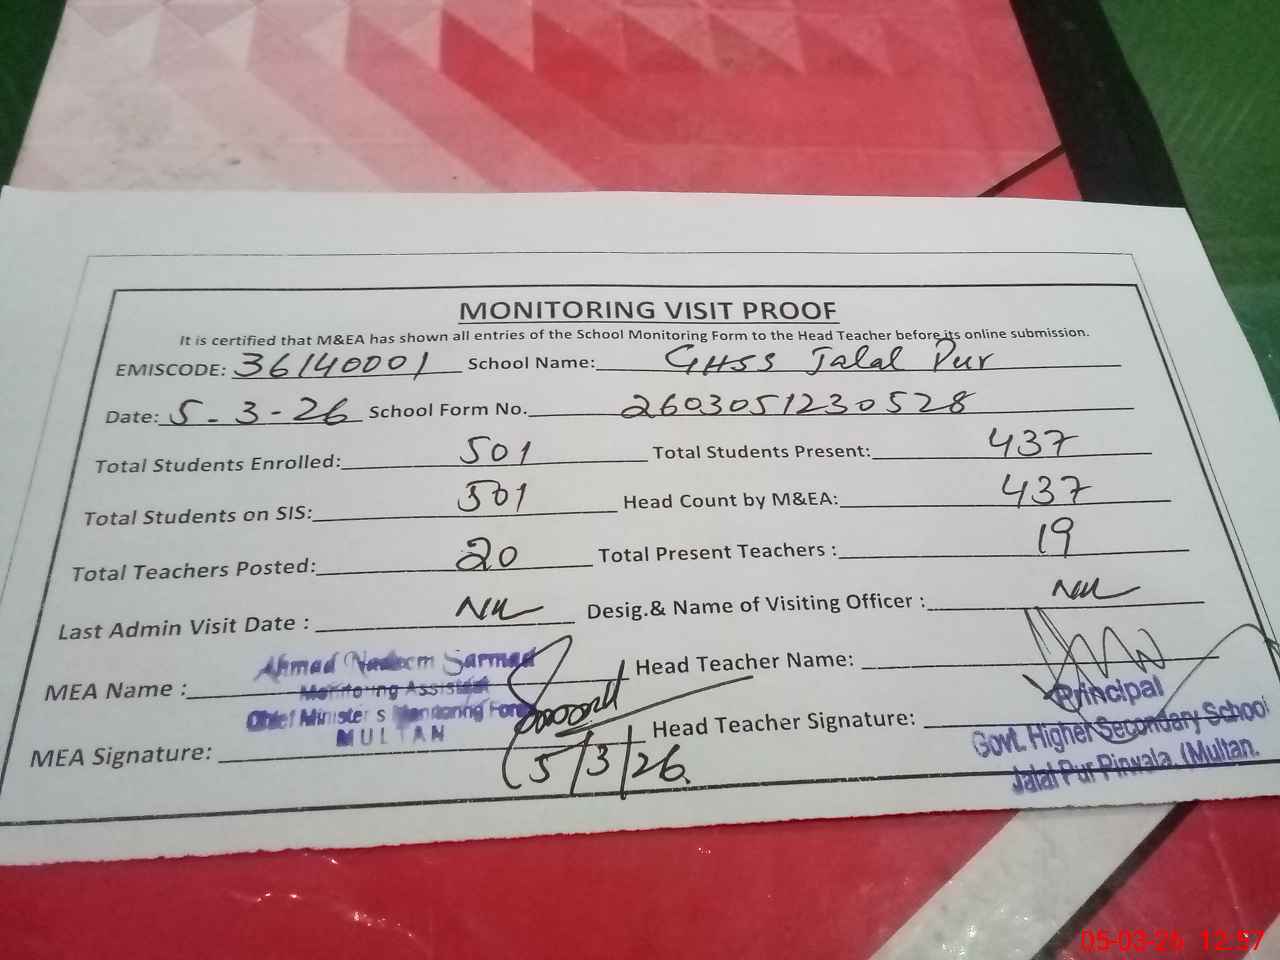 MONITORING VISIT PROOF
It is certified that M&EA has shown all entries of the School Monitoring Form to the Head Teacher before its online submission.
EMISCODE: 36140001 School Name: GHSS Jalal Pur
Date: 5-3-26 School Form No. 2603051230528
Total Students Enrolled: 501 Total Students Present: 437
Total Students on SIS: 501 Head Count by M&EA: 437
Total Teachers Posted: 20 Total Present Teachers : 19
Last Admin Visit Date : Nil Desig.& Name of Visiting Officer : Nil
MEA Name : Ahmad Nadeem Sarmad Head Teacher Name:
Monitoring Assistant
Chief Minister s Monitoring Force
MULTAN
MEA Signature: 5/3/26 Head Teacher Signature:
Principal
Govt. Higher Secondary School
Jalal Pur Pirwala, (Multan.
05-03-26 12:57